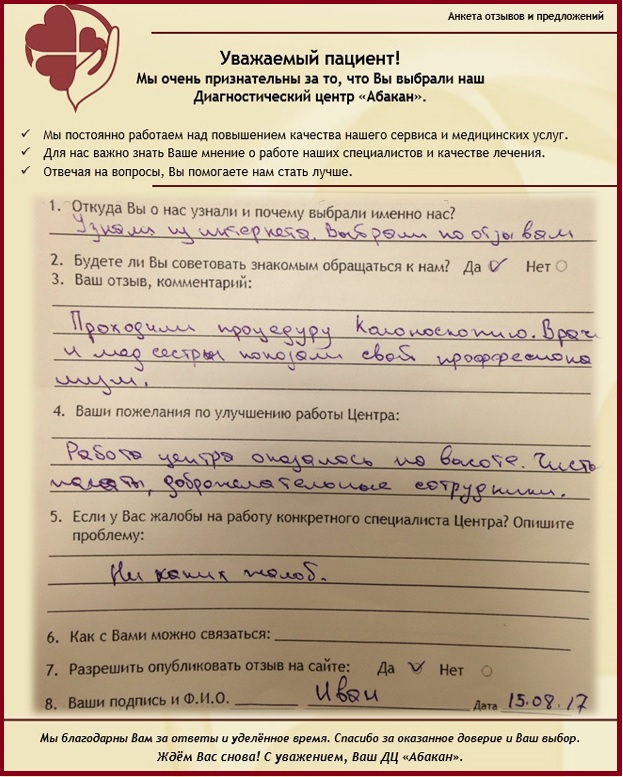 Анкета отзывов и предложений
Уважаемый пациент!
Мы очень признательны за то, что Вы выбрали наш
Диагностический центр «Абакан».
✓ Мы постоянно работаем над повышением качества нашего сервиса и медицинских услуг.
✓ Для нас важно знать Ваше мнение о работе наших специалистов и качестве лечения.
✓ Отвечая на вопросы, Вы помогаете нам стать лучше.
1. Откуда Вы о нас узнали и почему выбрали именно нас?
Узнали из интернета. Выбрали по отзывам
2. Будете ли Вы советовать знакомым обращаться к нам? Да ✓ Нет
3. Ваш отзыв, комментарий:
Проходили процедуру Колоноскопию. Врач
и мед сестры показали свой проффесиона
лизм.
4. Ваши пожелания по улучшению работы Центра:
Работа центра оказалась на высоте. Чисты
палаты, доброжелательные сотрудники.
5. Если у Вас жалобы на работу конкретного специалиста Центра? Опишите
проблему:
Ни каких жалоб.
6. Как с Вами можно связаться:
7. Разрешить опубликовать отзыв на сайте: Да ✓ Нет
8. Ваши подпись и Ф.И.О. Иван Дата 15.08.17
Мы благодарны Вам за ответы и уделённое время. Спасибо за оказанное доверие и Ваш выбор.
Ждём Вас снова! С уважением, Ваш ДЦ «Абакан».